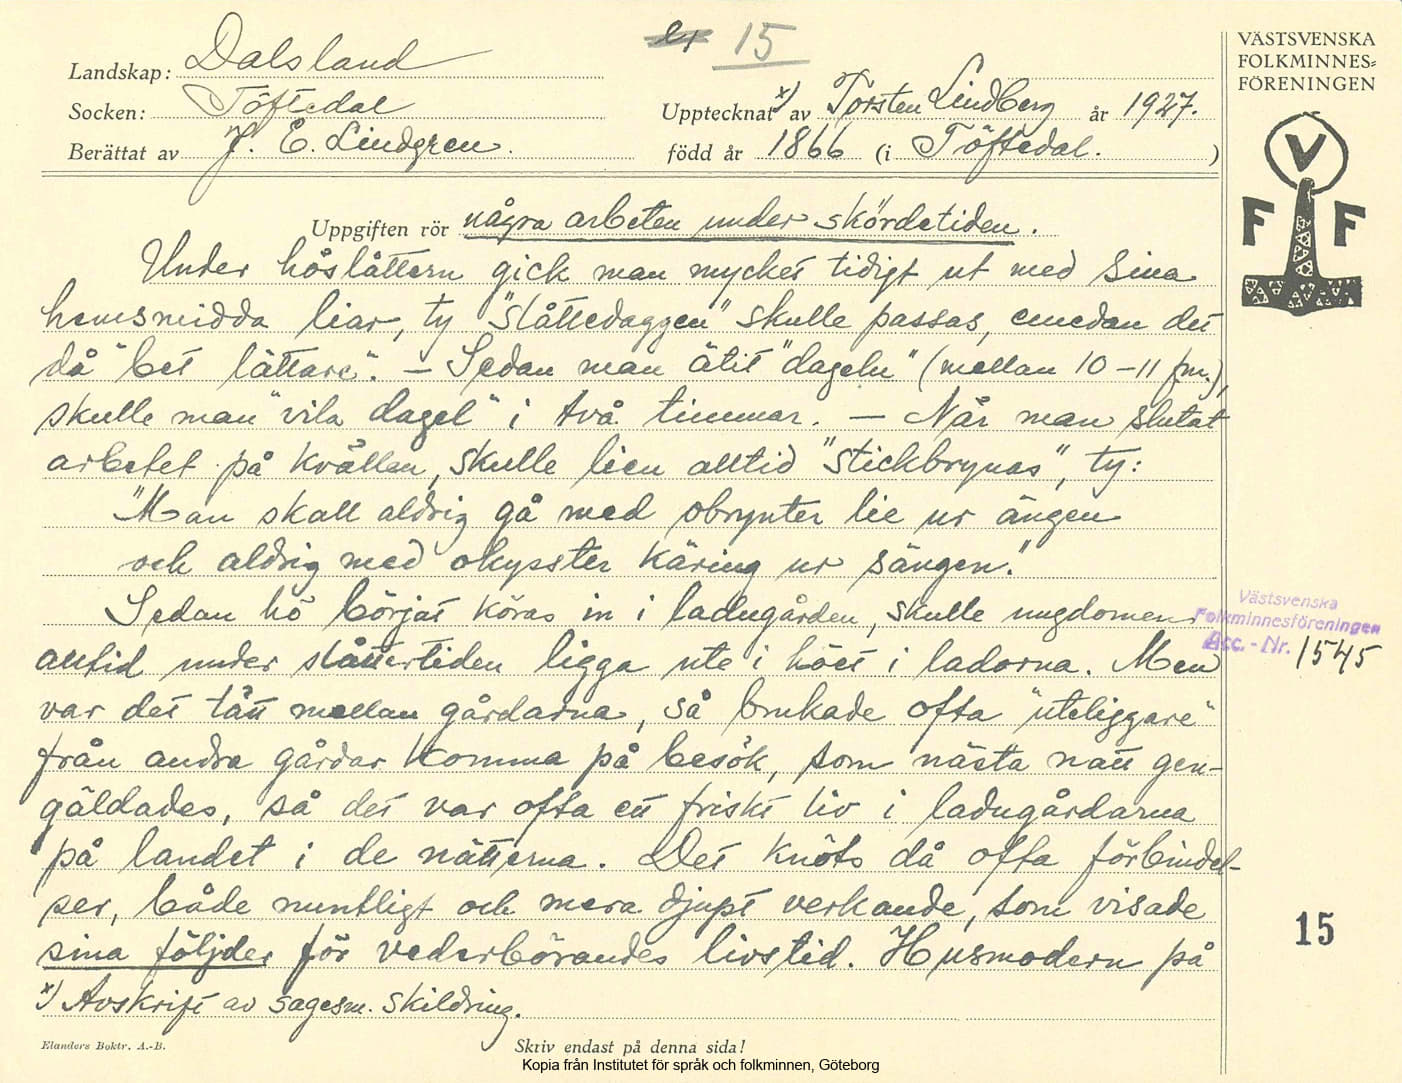 15
VÄSTSVENSKA
FOLKMINNES=
FÖRENINGEN
Landskap: Dalsland
Socken: Töftedal
Upptecknat x) av Torsten Lindberg år 1927.
Berättat av J. E. Lindgren.
född år 1866 (i Töftedal.)
V
F F
Uppgiften rör några arbeten under skördetiden.
Under höslåttern gick man mycket tidigt ut med sina
hemsmidda liar, ty "slåttedaggen" skulle passas, emedan det
då "bet lättare". – Sedan man ätit "dageln" (mellan 10–11 fm.),
skulle man "vila dagel" i två timmar. — När man slutat
arbetet på kvällen, skulle lien alltid "stickbrynas", ty:
"Man skall aldrig gå med obrynter lie ur ängen
och aldrig med okysster käring ur sängen."
Sedan hö börjat köras in i ladugården, skulle ungdomen
alltid under slåttertiden ligga ute i höet i ladorna. Men
var det tätt mellan gårdarna, så brukade ofta "uteliggare"
från andra gårdar komma på besök, som nästa natt gen-
gäldades, så det var ofta ett friskt liv i ladugårdarna
på landet i de nätterna. Det knöts då ofta förbindel-
ser, både muntligt och mera djupt verkande, som visade
sina följder för vederbörandes livstid. Husmodern på
x) Avskrift av sagesm. skildring.
Västsvenska
Folkminnesföreningen
Acc.-Nr. 1545
15
Elanders Boktr. A.-B.
Skriv endast på denna sida!
Kopia från Institutet för språk och folkminnen, Göteborg